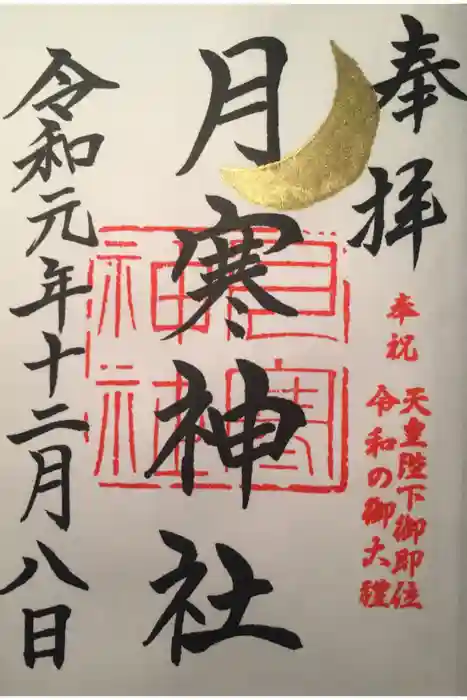 奉拝
奉祝
天皇陛下御即位
令和の御大礼
月寒神社
月寒
神社
令和元年十二月八日